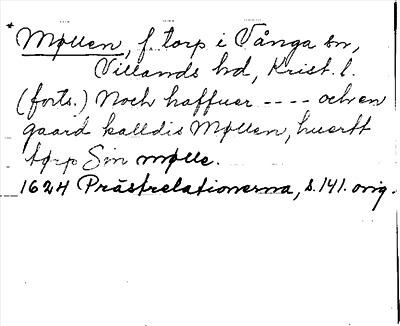 * Møllen, f. torp i Vånga sn,
Villands hd, Krist. l.
(forts.) Noch haffuer ---- och en
gaard kalldis Møllen, huertt
torp Sin mølle.
1624 Prästrelationerna, s. 141. orig.